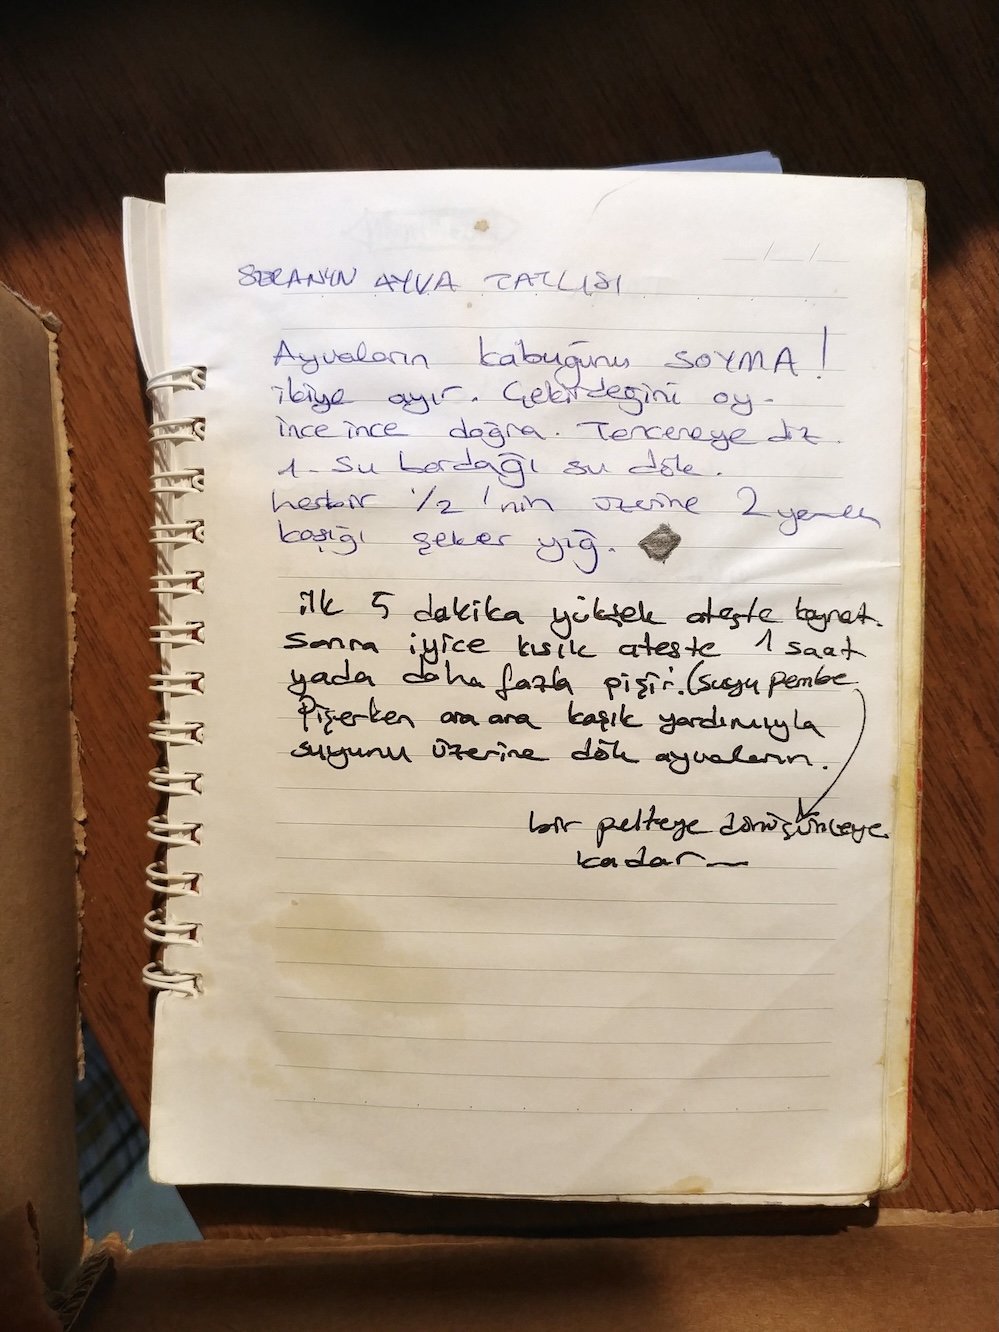 SERANIN AYVA TATLISI
Ayvaların kabuğunu SOYMA!
ikiye ayır. Çekirdeğini oy.
ince ince doğra. Tencereye diz.
1 su bardağı su dök.
herbir 1/2 'nin üzerine 2 yemek
kaşığı şeker yığ.
ilk 5 dakika yüksek ateşte kaynat.
Sonra iyice kısık ateşte 1 saat
yada daha fazla pişir. (suyu pembe
Pişerken ara ara kaşık yardımıyla
suyunu üzerine dök ayvaların.
bir pelteye dönüşünceye
kadar